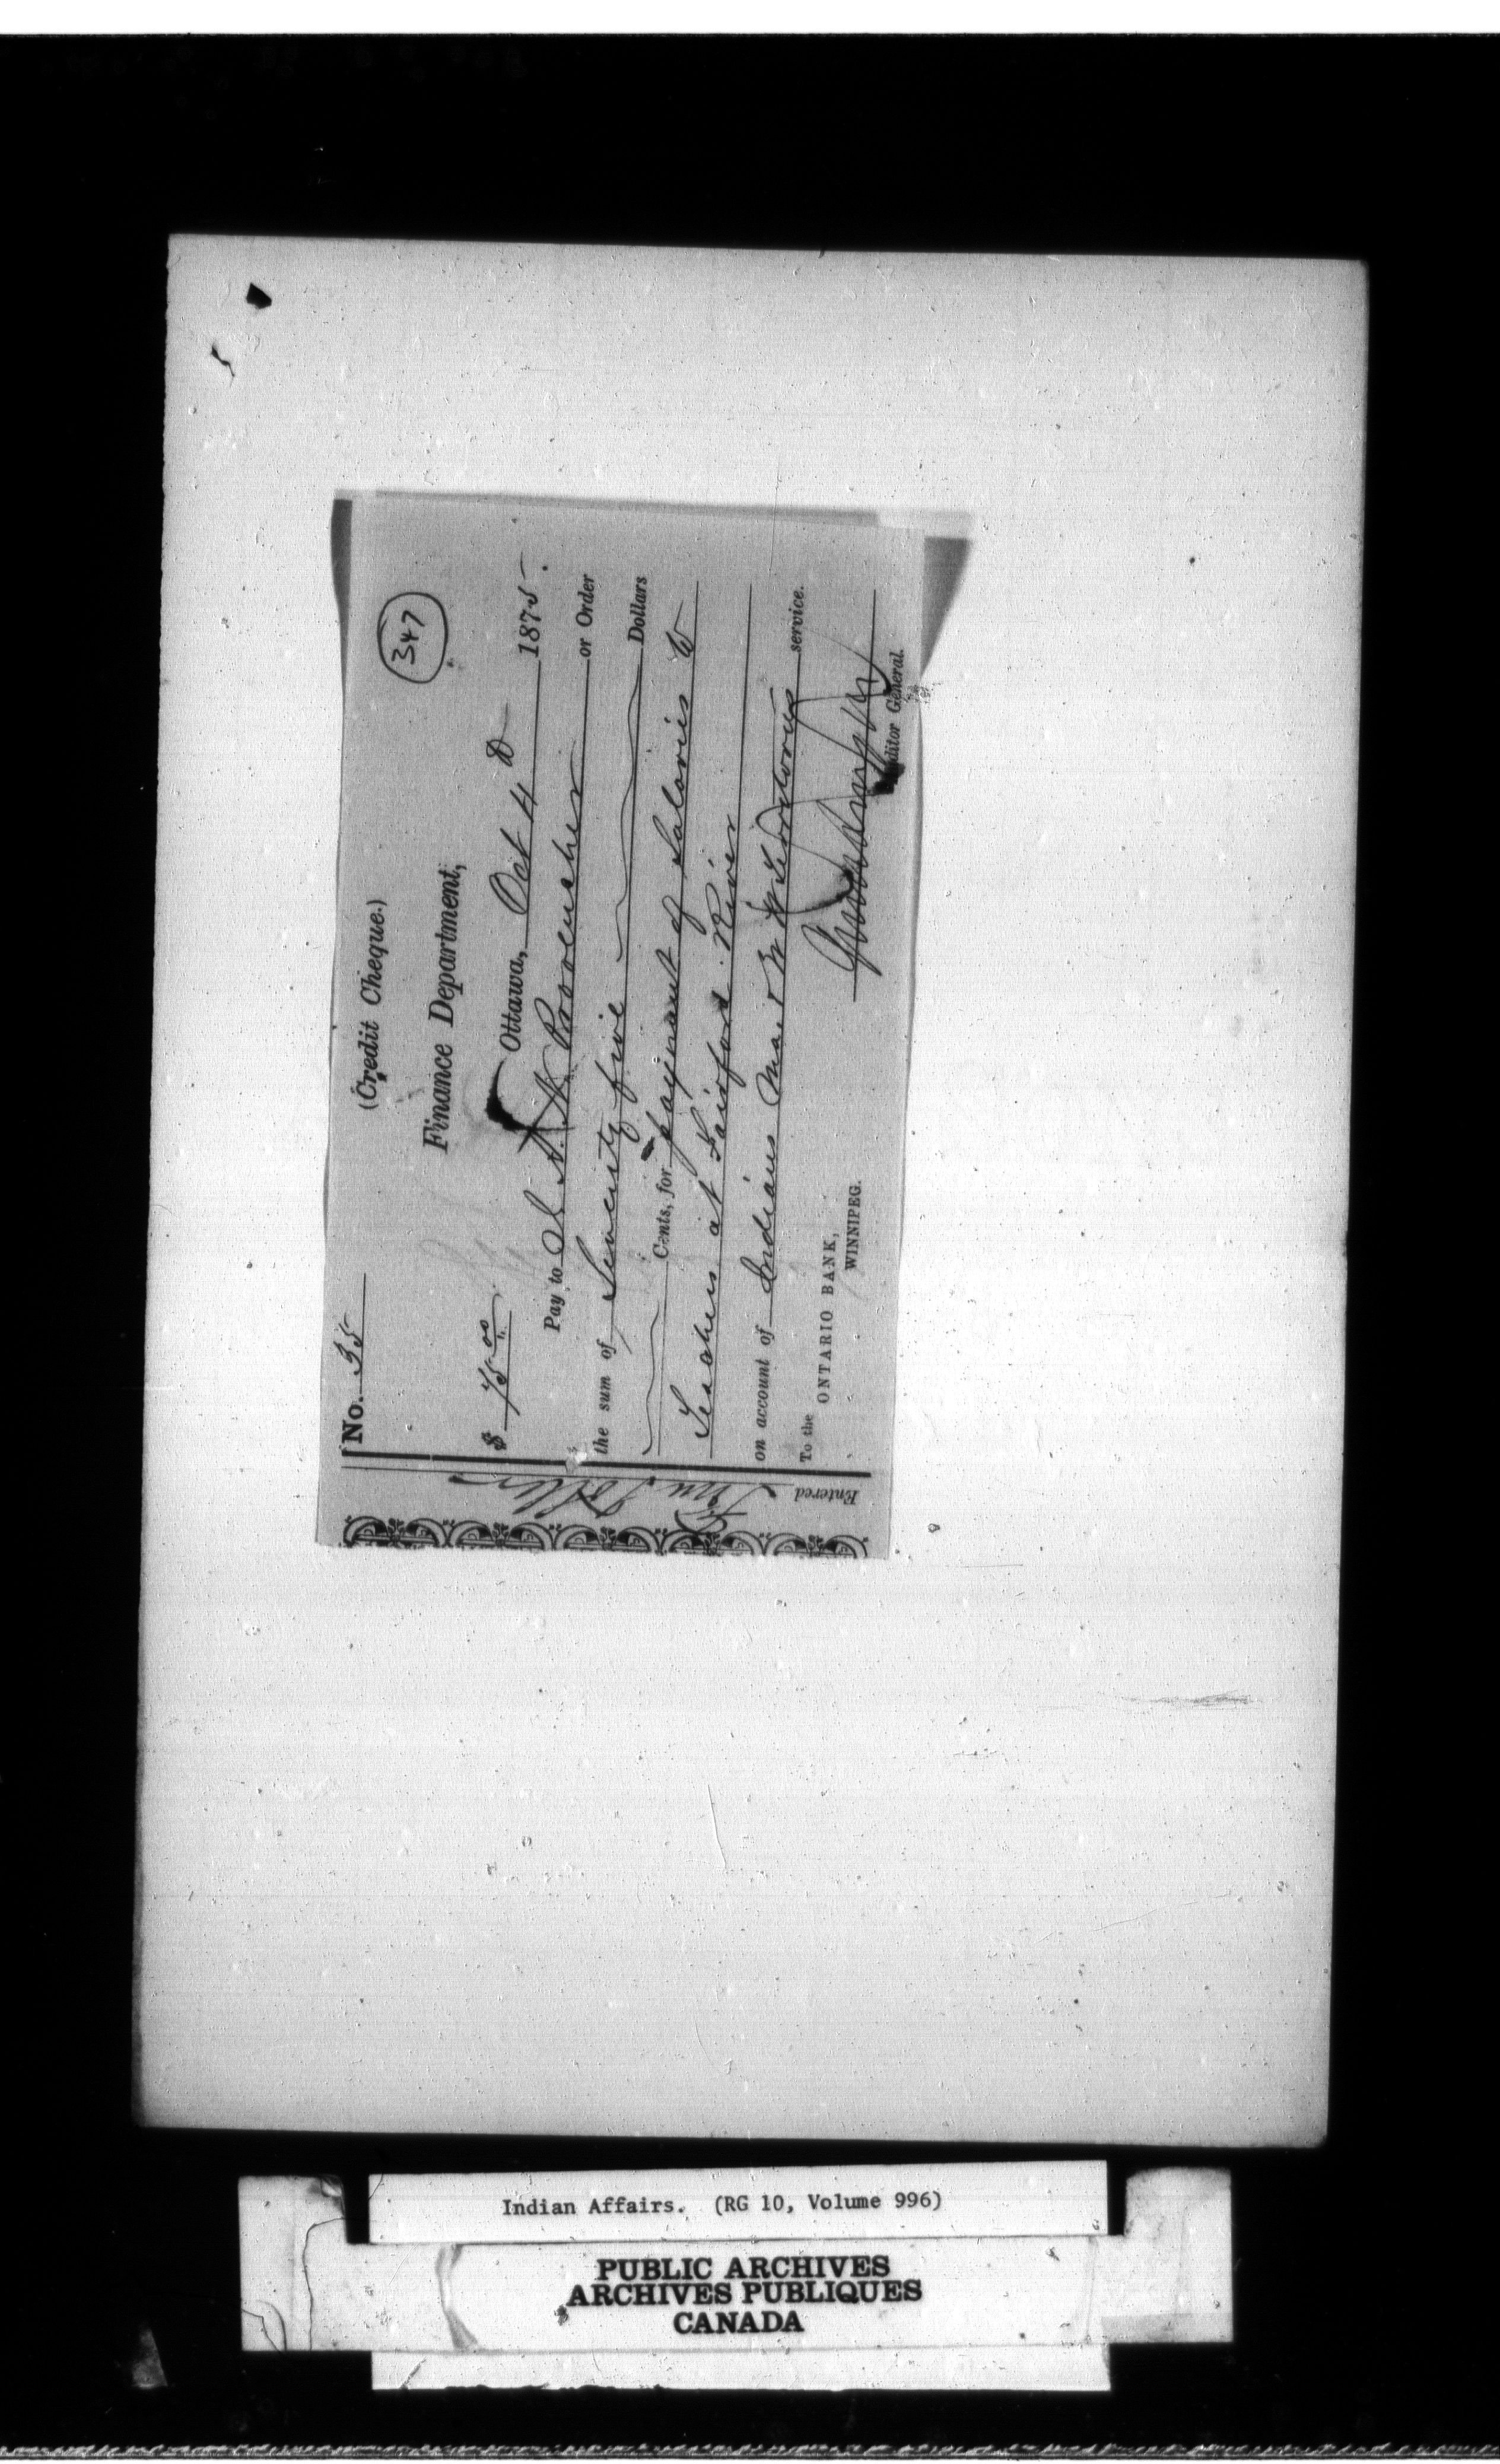 347
No. 35
(Credit Cheque.)
Finance Department,
$ 75 00
Ottawa, Oct 4 1875.
Pay to J. A. N. Provencher or Order
the sum of Seventy five Dollars
Cents, for payment of Salaries to
Teachers at Fairford River
on account of Indians Man & N W Territories service.
To the
ONTARIO BANK,
WINNIPEG.
Auditor General.
Entered
Dollars
Indian Affairs. (RG 10, Volume 996)
PUBLIC ARCHIVES
ARCHIVES PUBLIQUES
CANADA